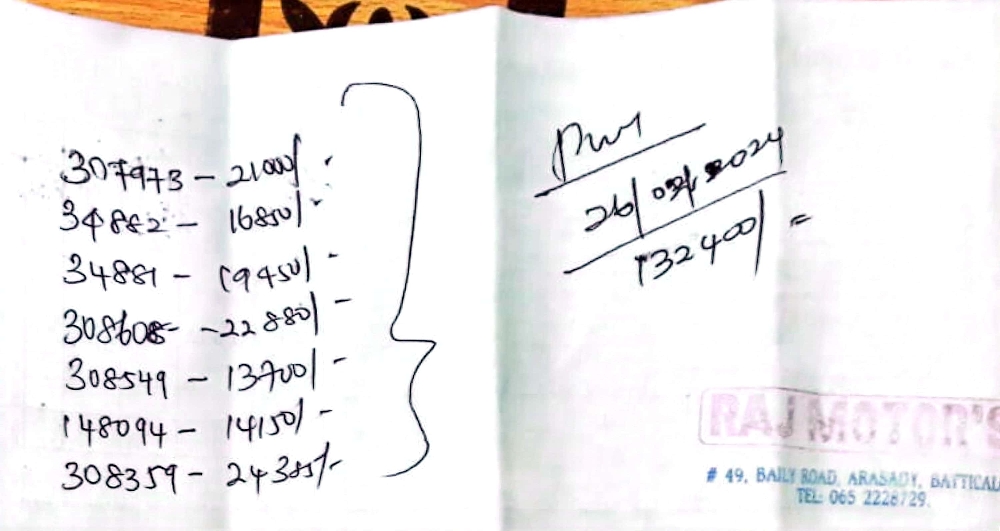 307973 - 21000/-
34882 - 16850/-
34881 - 19450/-
308608 - 22880/-
308549 - 13700/-
148094 - 14150/-
308359 -
132400/=
RAJ MOTOR'S
# 49, BAILY ROAD, ARASADY, BATTICAL
TEL: 065 2228729.